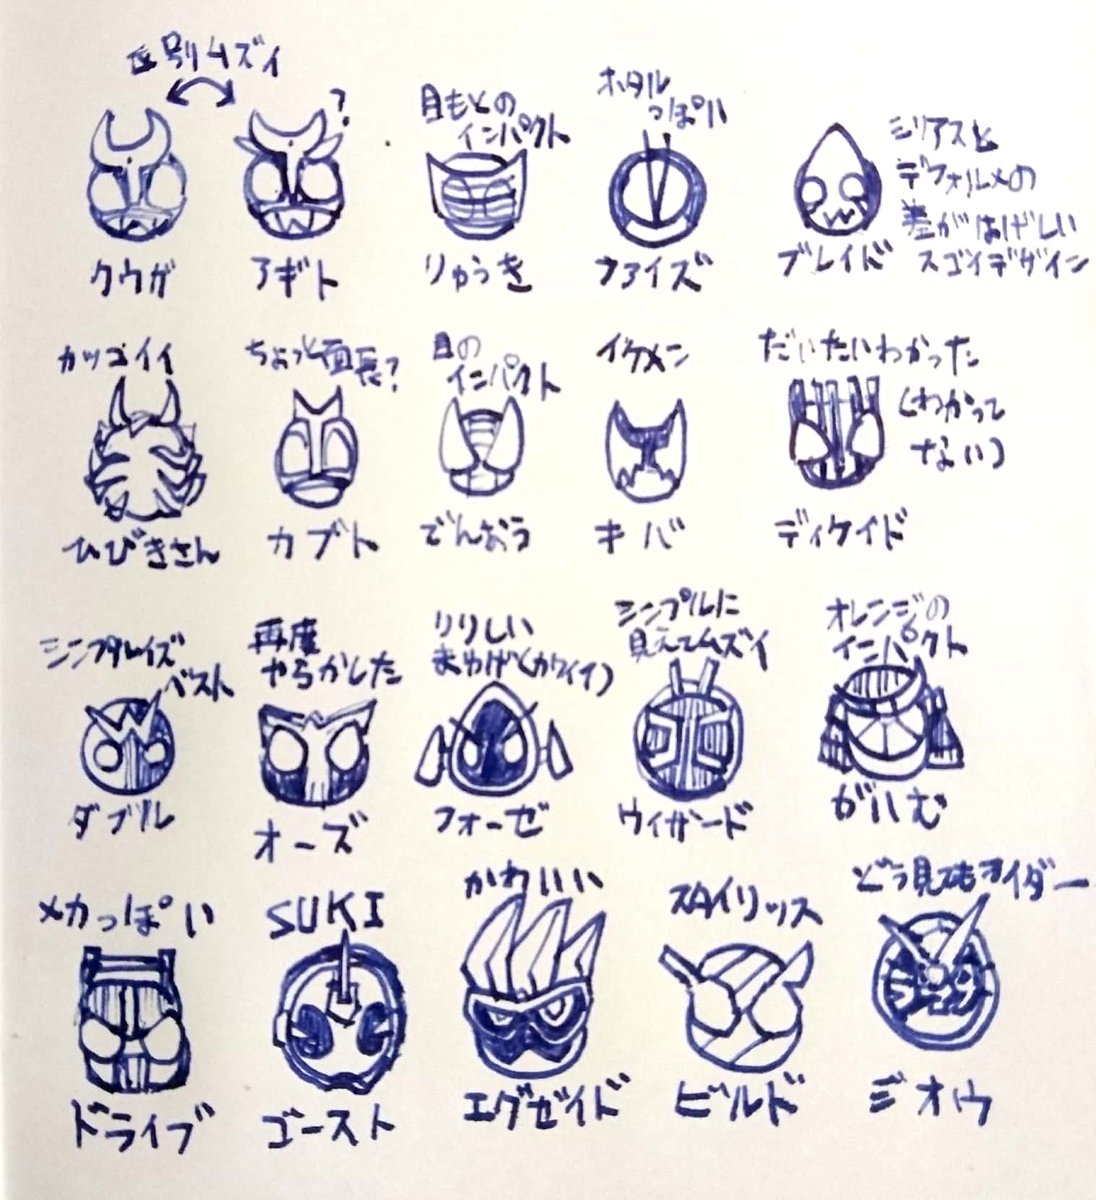 区別ムズイ
?
クウガ
アギト
目もとの
インパクト
りゅうき
ホタル
っぽい
ファイズ
シリアスと
デフォルメの
差がはげしい
スゴイデザイン
ブレイド
カッコイイ
ひびきさん
ちょっと面長?
カブト
目の
インパクト
でんおう
イケメン
キバ
だいたいわかった
(わかって
ない)
ディケイド
シンプルイズ
ベスト
ダブル
再度
やらかした
オーズ
りりしい
まゆげ(カワイイ)
フォーゼ
シンプルに
見えてムズイ
ウィザード
オレンジの
インパクト
がいむ
メカっぽい
ドライブ
SUKI
ゴースト
かわいい
エグゼイド
スタイリッス
ビルド
どう見てもライダー
ジオウ